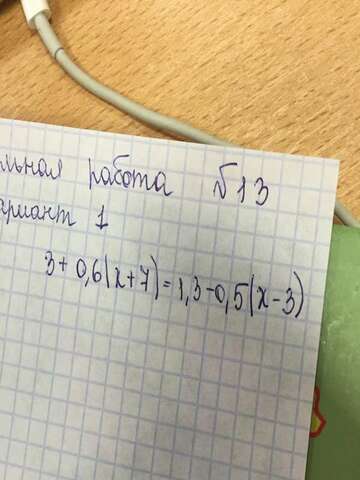 работа №13
Вариант 1
3+0,6(x+7)=1,3-0,5(x-3)